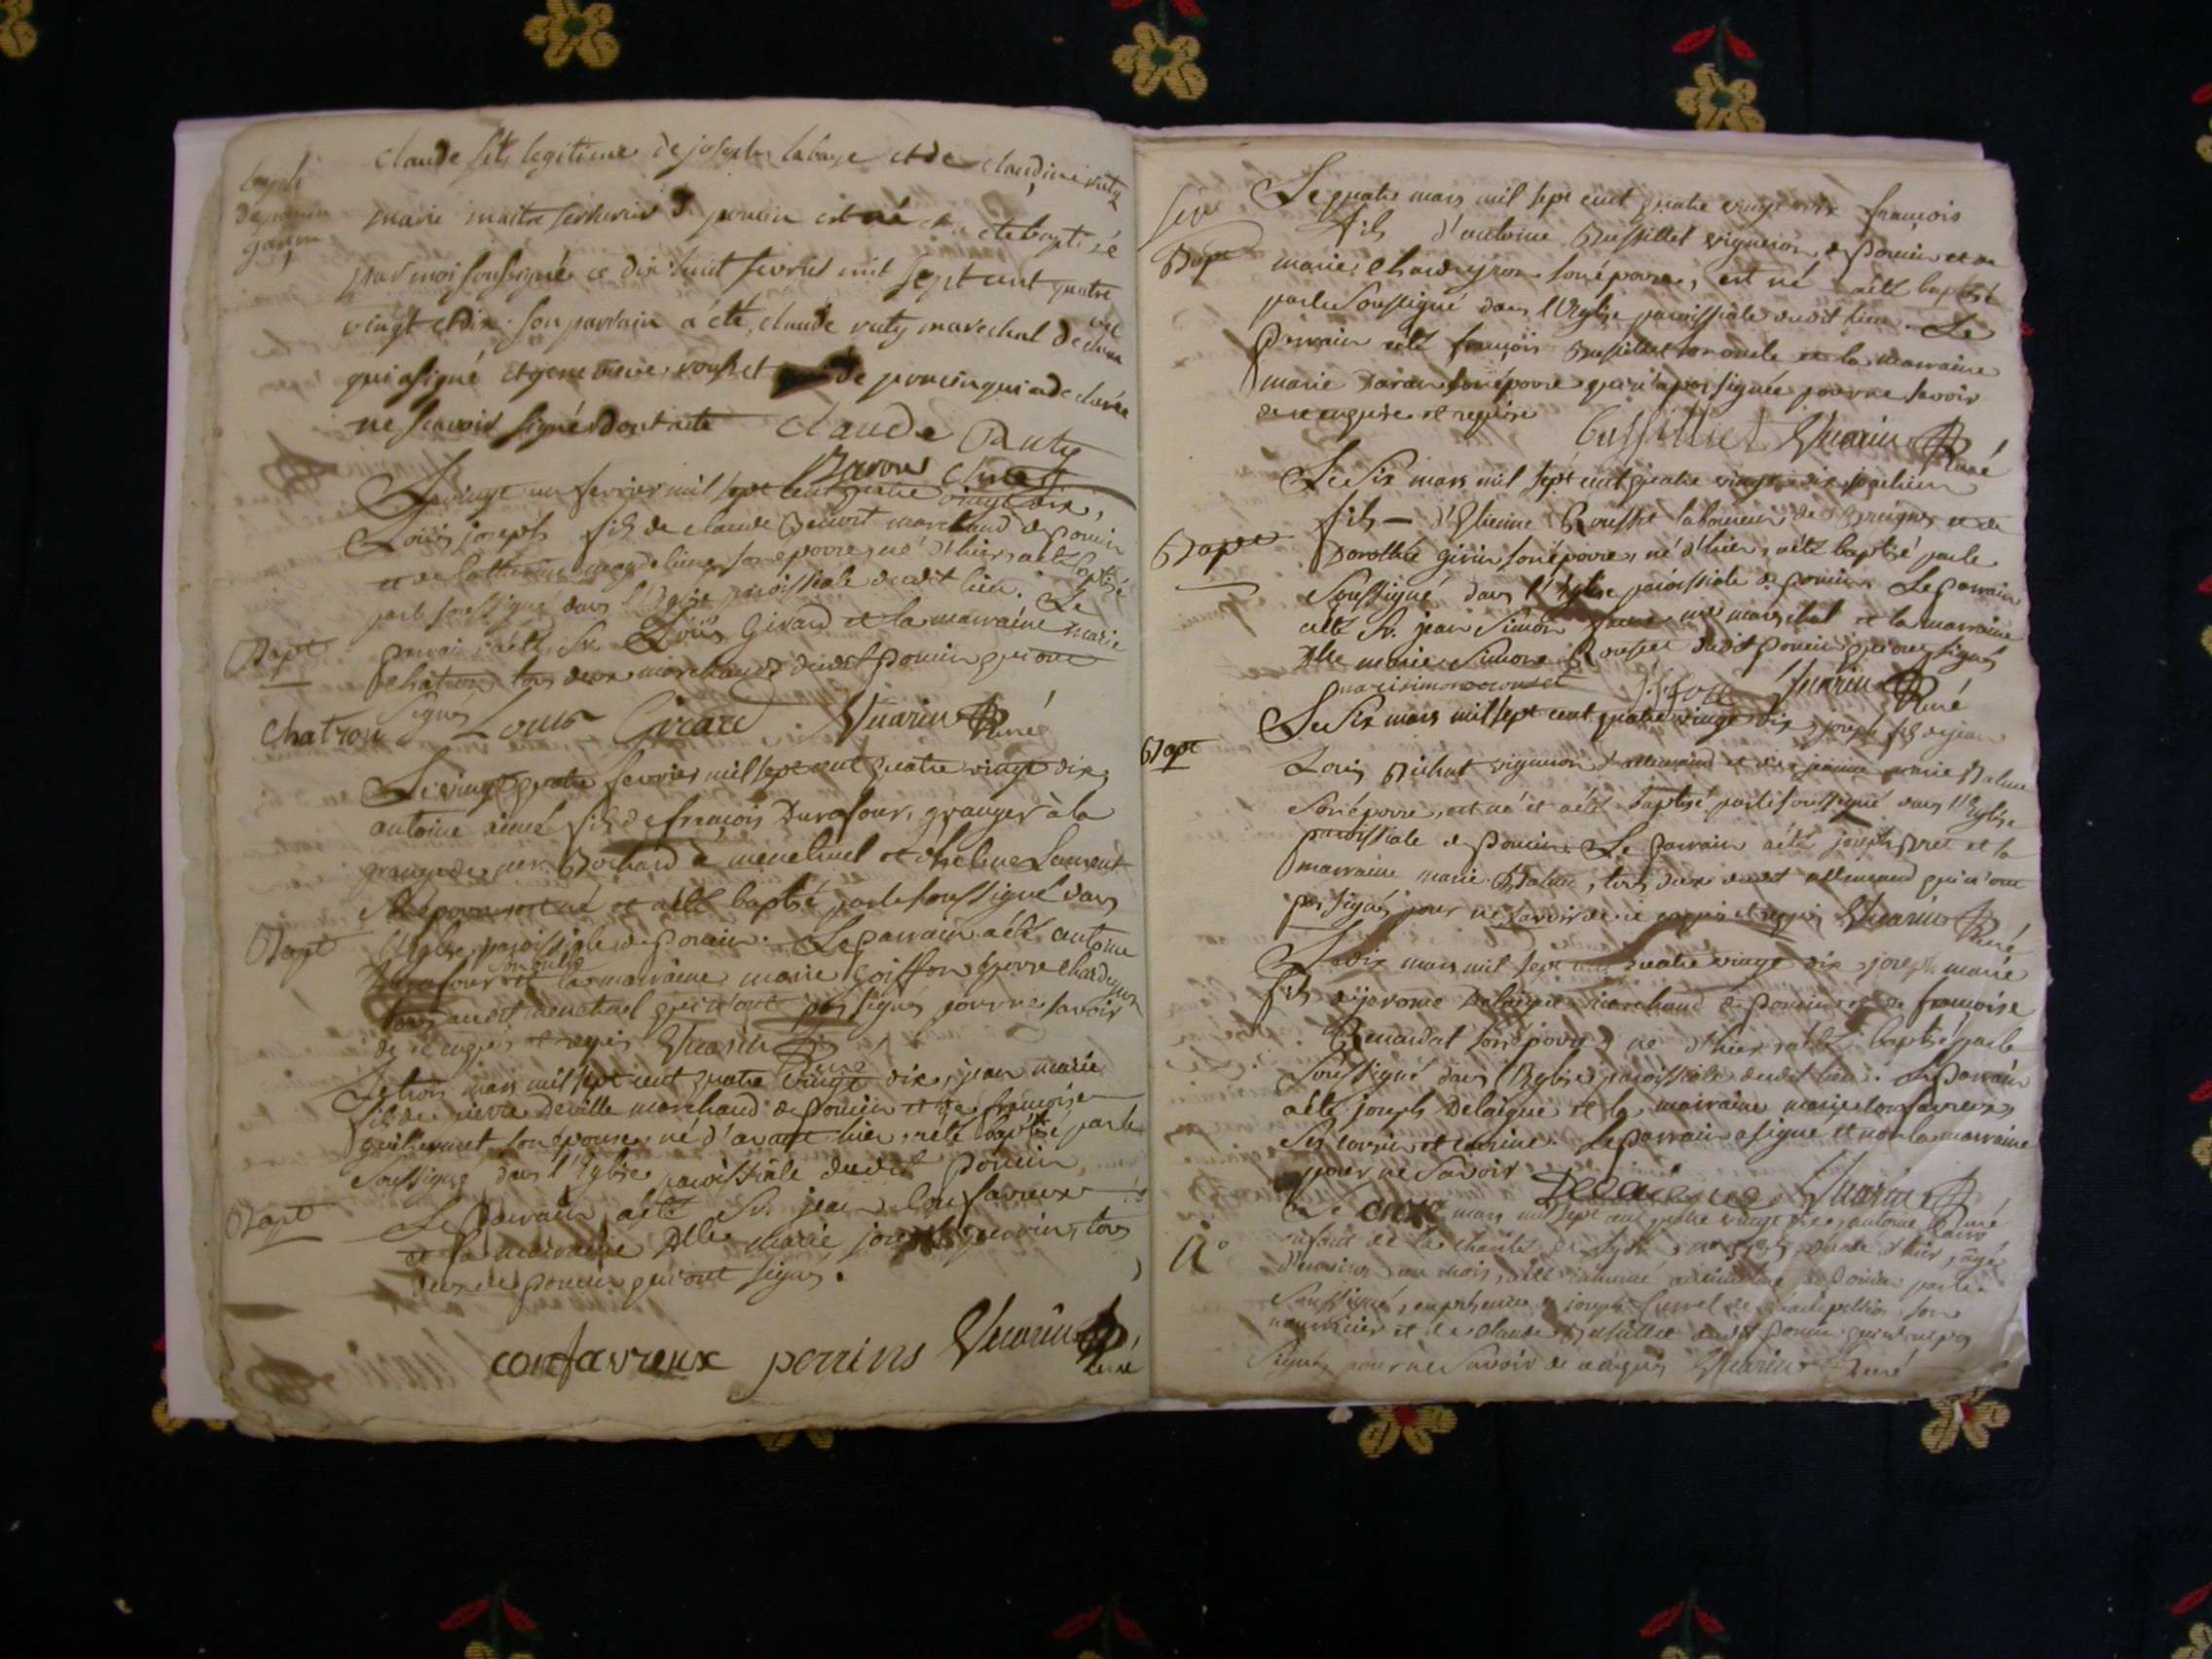 claude fils legitime de joseph labaye et de claudine ruty
marie maitre serrurier de poncin est né et a été baptisé
par moi soussigné ce dix huit fevrier mil sept cent quatre
vingt et dix. son parrain a été claude ruty marechal de
qui a signé et marie de poncin qui a declarée
ne scavoir signér dont acte claude Ruty
Le vingt un fevrier mil sept cent quatre vingt dix,
Loüis joseph fils de claude Benoit marchand de poncin
et de Catherine son epouse, né d'hier, a été baptisé
par le soussigné dans l'Eglise paroissiale dudit lieu. Le
Bapt parrain a été Sr. Loüis Girard et la marraine marie
chatron tous deux marchands dudit poncin qui ont
signés
chatron Louis Girard Vuarin Curé
Le vingt quatre fevrier mil sept cent quatre vingt dix,
antoine aimé fils de françois Durafour, granger à la
grange de mr. Bochard à menetruel et d'helene Laurent
son epouse est né et a été baptisé par le soussigné dans
Bapt l'Eglise paroissiale de poncin. Le parrain a été antoine
Durafour son oncle et la marraine marie Goiffon epouse chardeyron
tous dudit menetruel qui n'ont pas signés pour ne savoir
de ce enquis et requis Vuarin Curé
Le trois mars mil sept cent quatre vingt dix, jean marie
fils de pierre Deville marchand de poncin et de françoise
guillermet son epouse, né d'avant hier, a été baptisé par le
soussigné dans l'Eglise paroissiale dudit poncin
Bapt Le parrain a été Sr. jean Confavreux
et la marraine Dlle marie perrin, tous
deux de poncin qui ont signés.
confavreux perrins Vuarin Curé
Le quatre mars mil sept cent quatre vingt dix françois
fils d'antoine Bussillet vigneron de poncin et de
Bapt marie Chardeyron son épouse, est né a été baptisé
par le soussigné dans l'Eglise paroissiale dudit lieu. Le
parrain a été françois Bussillet son oncle et la marraine
marie son épouse qui n'a pas signée pour ne savoir
de ce enquise et requise
bussilliet Vuarin Curé
Le Six mars mil sept cent quatre vingt dix
fils d'Etienne Rousset laboureur de et de
Bapt Dorothée girin son épouse, né d'hier, a été baptisé par le
soussigné dans l'Eglise paroissiale de poncin. Le parrain
a été Sr. jean Simon me marechal et la marraine
Dlle marie Simone Rousset dudit poncin qui ont signés
marie simone rouset Vuarin Curé
Le Six mars mil sept cent quatre vingt dix, joseph fils de jean
Bapt Louis Bichat vigneron d'allemand et de jeanne marie Balme
son épouse, est né et a été baptisé par le soussigné dans l'Eglise
paroissiale de poncin. Le parrain a été joseph et la
marraine marie Balme, tous deux dudit allemand qui n'ont
pas signés pour ne savoir de ce enquis et requis Vuarin Curé
Le dix mars mil sept cent quatre vingt dix, joseph marie
fils de jerome Delaigue marchand de poncin et de françoise
Renardat son épouse, né d'hier a été baptisé par le
soussigné dans l'Eglise paroissiale dudit lieu. Le parrain
a été joseph Delaigue et la marraine marie Confavreux
ses cousin et cousine. Le parrain a signé et non la marraine
pour ne savoir Delaigue Vuarin Curé
Le onze mars mil sept cent quatre vingt dix, antoine
enfant de la charité de decedé d'hier, âgé
d'environ un mois, a été inhumé au cimetiere de poncin par le
soussigné, en presence de joseph son
nourricier et de claude Bussillet dudit poncin qui n'ont pas
signés pour ne savoir de ce enquis Vuarin Curé